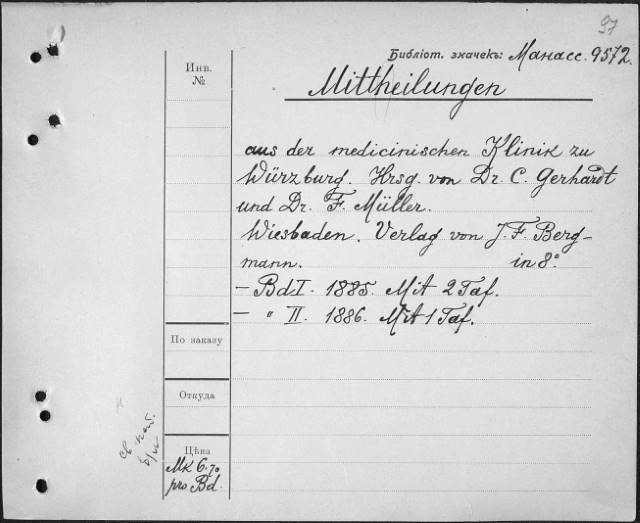 97
Библіот. значекъ: Манасс. 9572.
Инв. №
Mittheilungen
aus der medicinischen Klinik zu
Würzburg. Hrsg. von Dr. C. Gerhardt
und Dr. F. Müller.
Wiesbaden. Verlag von J. F. Berg-
mann. in 8°
– Bd I. 1885. Mit 2 Taf.
– " II. 1886. Mit 1 Taf.
По заказу
Откуда
Цѣна
Mk 6.70
pro Bd.